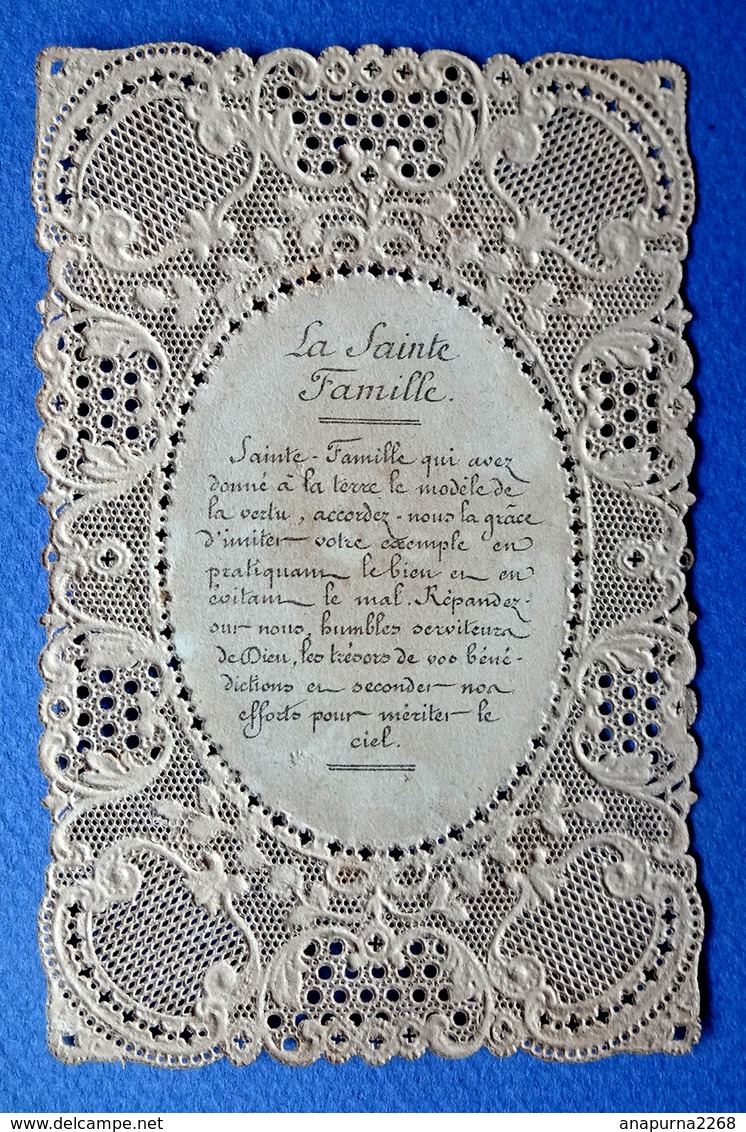 La Sainte
Famille.
Sainte-Famille qui avez
donné à la terre le modèle de
la vertu, accordez-nous la grâce
d'imiter votre exemple en
pratiquant le bien et en
évitant le mal. Répandez-
sur nous, humbles serviteurs
de Dieu, les trésors de vos béné-
dictions et seconder nos
efforts pour mériter le
ciel.
delcampe.net
anapurna2268